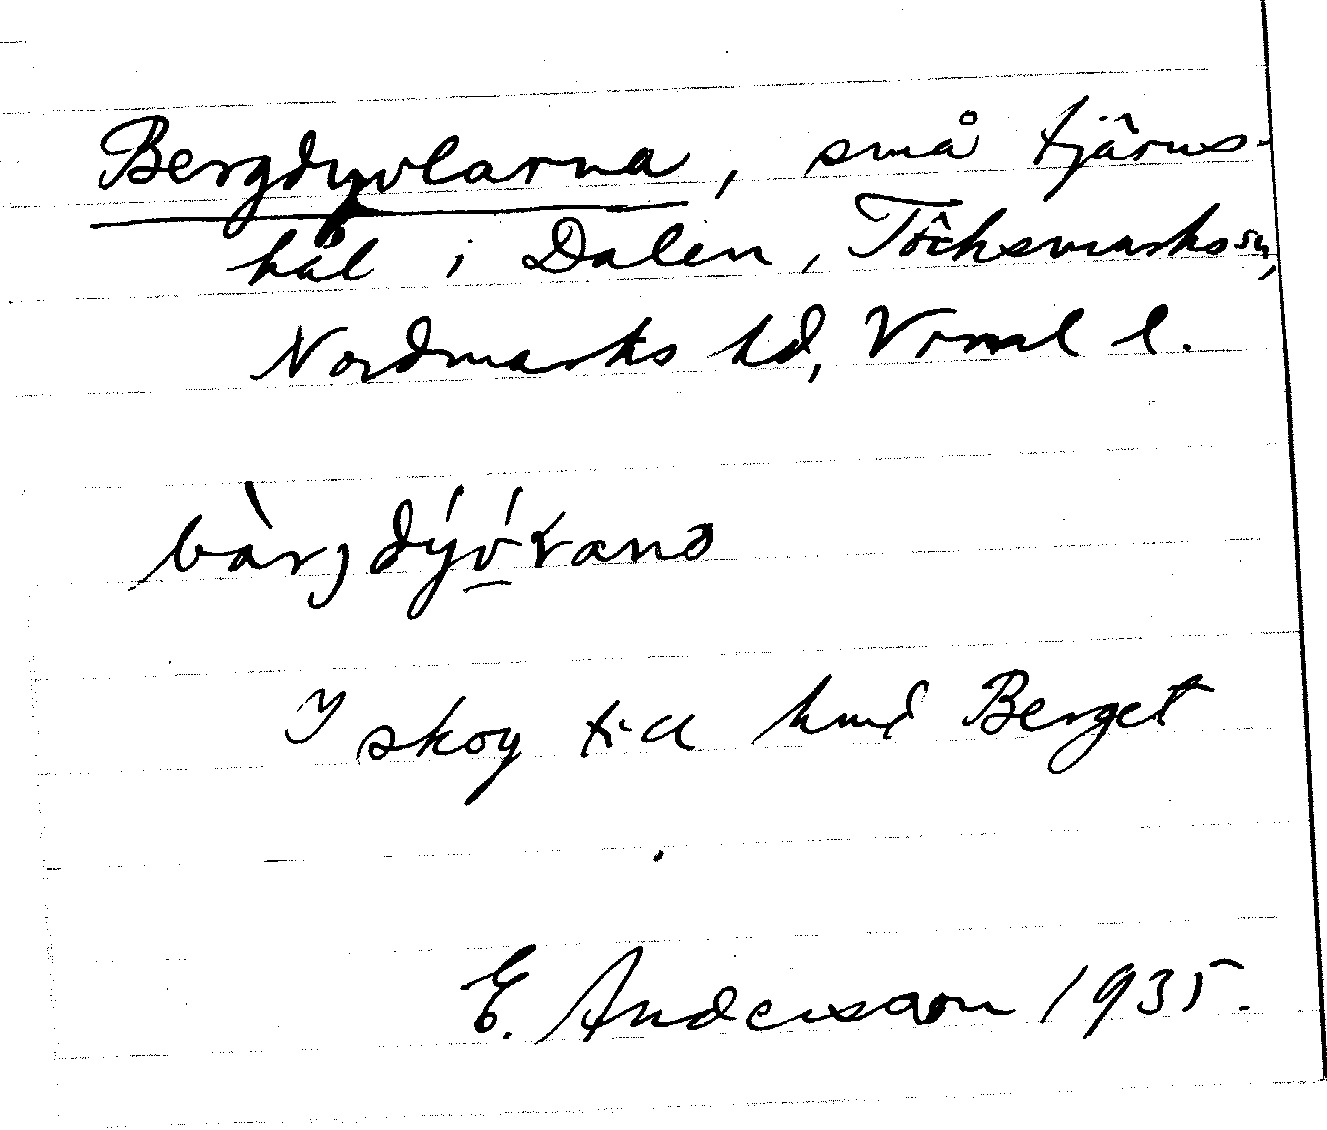 Bergdyvlarna, små tjärns-
hål i Dalen, Töcksmarks sn,
Nordmarks hd, Vrml l.
bàrjdýv́ɽanɔ
I skog till hmd Berget
E. Andersson 1935.